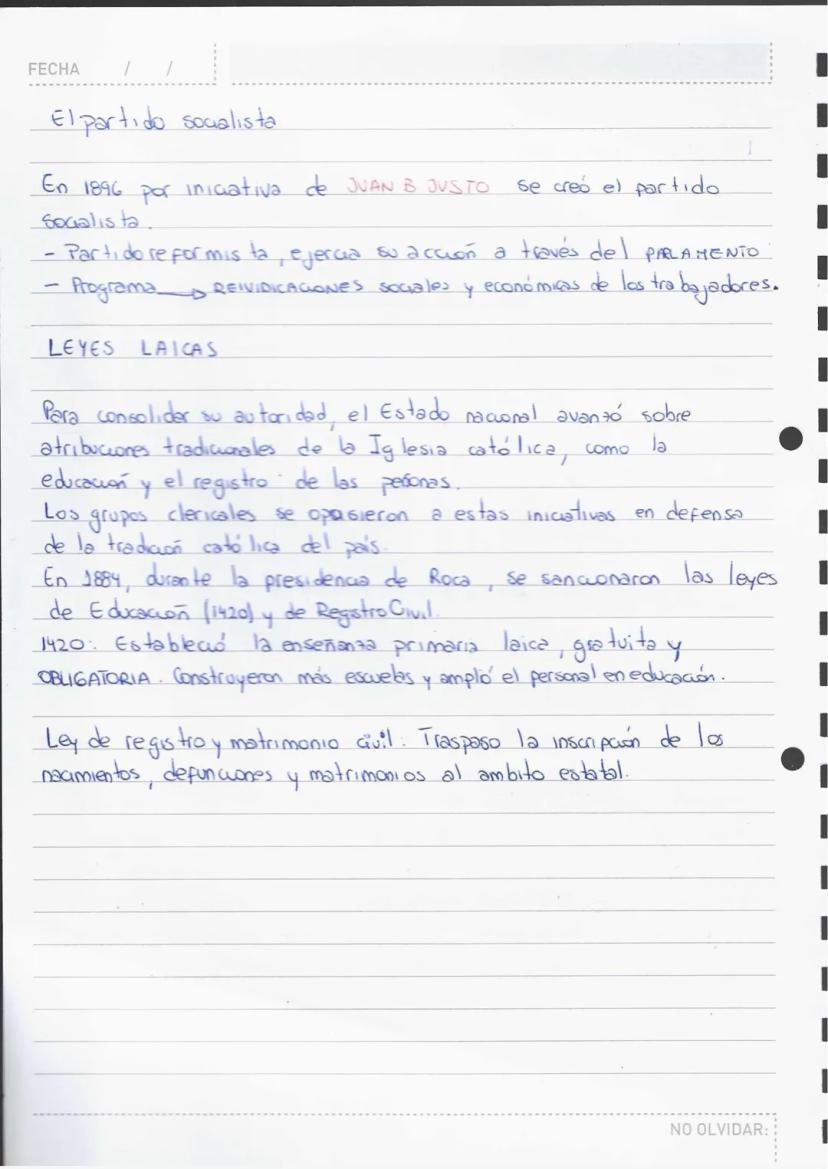 FECHA / /
El partido socialista
En 1896 por iniciativa de JUAN B JUSTO se creó el partido
socialista.
- Partido reformista, ejercia su acción a través del PARLAMENTO
- Programa → REIVIDICACIONES sociales y económicas de los trabajadores.
LEYES LAICAS
Para consolidar su autoridad, el Estado nacional avanzó sobre
atribuciones tradicionales de la Iglesia católica, como la
educación y el registro de las personas.
Los grupos clericales se opusieron a estas iniciativas en defensa
de la tradición católica del país.
En 1884, durante la presidencia de Roca, se sancionaron las leyes
de Educación (1420) y de Registro Civil.
1420: Estableció la enseñanza primaria laica, gratuita y
OBLIGATORIA. Construyeron más escuelas y amplió el personal en educación.
Ley de registro y matrimonio civil: Traspaso la inscripción de los
nacimientos, defunciones y matrimonios al ambito estatal.
NO OLVIDAR: